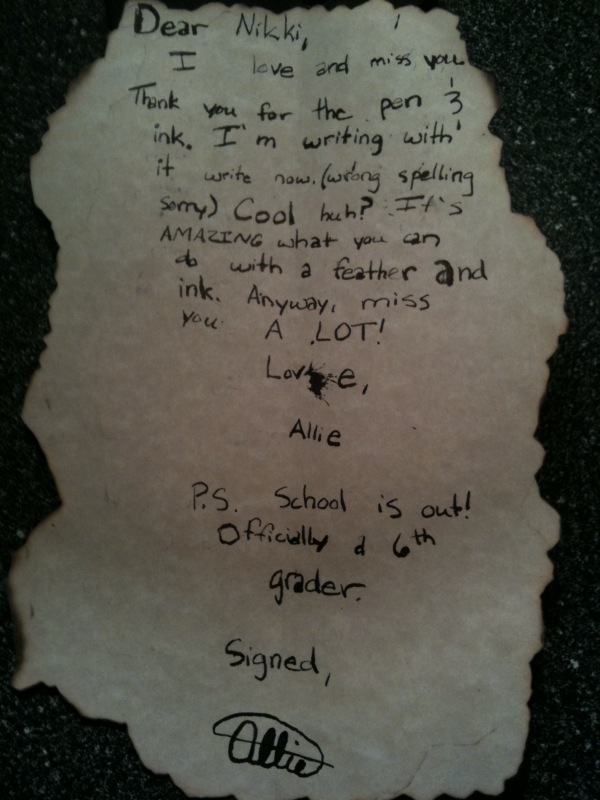 Dear Nikki,
I love and miss you
Thank you for the pen &
ink. I'm writing with
it write now. (wrong spelling
sorry) Cool huh? It's
AMAZING what you can
do with a feather and
ink. Anyway, miss
you A LOT!
Love,
Allie
P.S. School is out!
Officially a 6th
grader.
Signed,
Allie